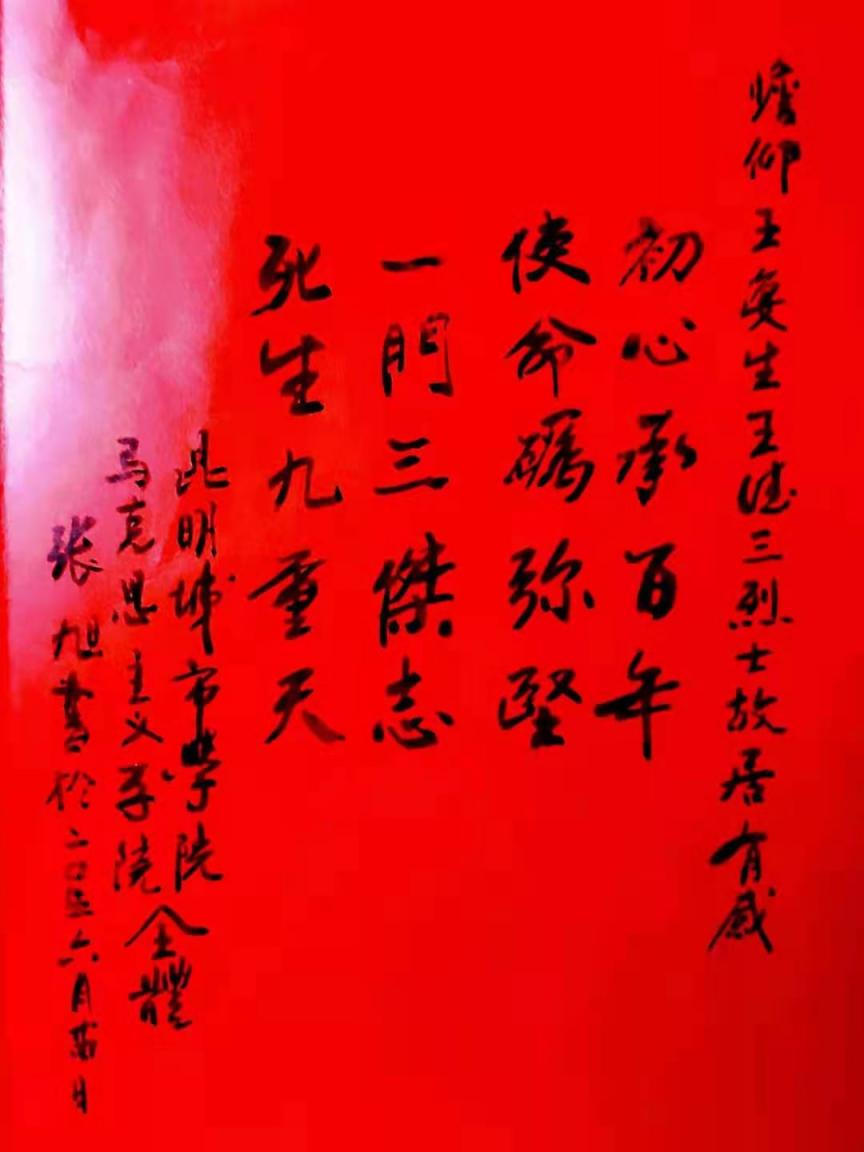 瞻仰王复生王德三烈士故居有感
初心承百年
使命礪弥堅
一門三傑志
死生九重天
昆明城市學院
马克思主义学院全體
张旭書於二〇二五六月廿四日